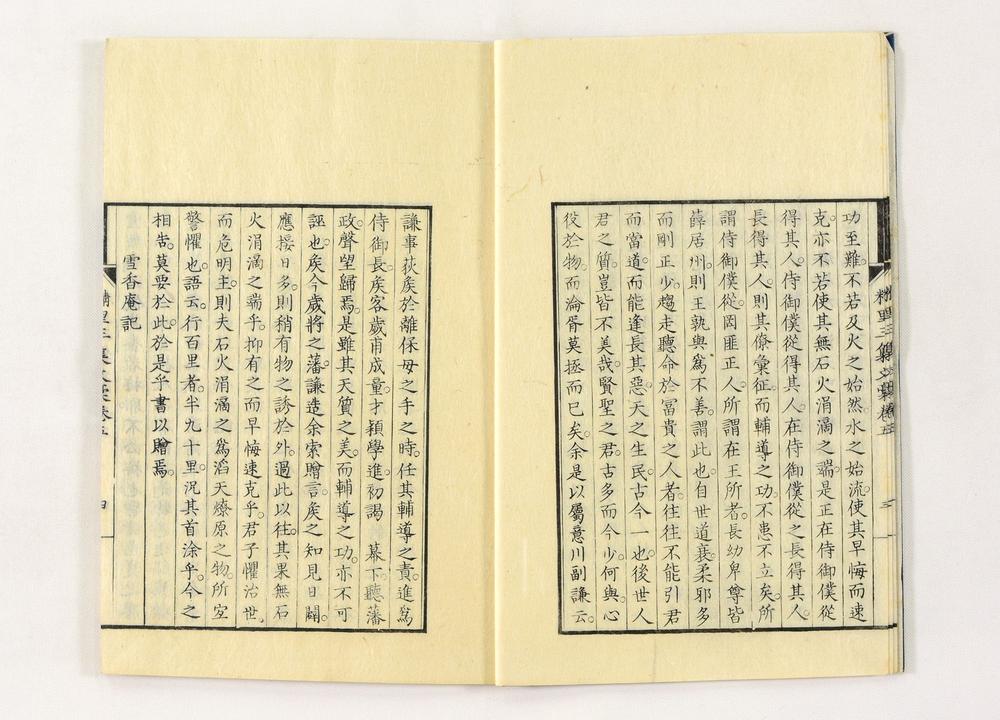 功至難。不若及火之始然水之始流。使其早悔而速
克。亦不若使其無石火涓滴之端。是正在侍御僕從
得其人。侍御僕從得其人。在侍御僕從之長得其人。
長得其人。則其僚彙征。而輔導之功。不患不立矣。所
謂侍御僕從。罔匪正人。所謂在王所者。長幼卑尊皆
薛居州。則王孰與爲不善。謂此也。自世道衰。柔邪多
而剛正少。趨走聽命於富貴之人者。往往不能引君
而當道。而能逢長其惡。天之生民。古今一也。後世人
君之質。豈皆不美哉。賢聖之君。古多而今少。何與。心
役於物。而淪胥莫拯而已矣。余是以屬意川副謙云。
謙事荻矦於離保母之手之時。任其輔導之責。進爲
侍御長。矦客歲甫成童。才穎學進。初謁　幕下。聽藩
政。聲望歸焉。是雖其天質之美。而輔導之功。亦不可
誣也。矦今歲將之藩。謙造余索贈言。矦之知見日闢。
應接日多。則稍有物之診於外。過此以往。其果無石
火涓滴之端乎。抑有之而早悔速克乎。君子懼治世。
而危明主。則夫石火涓滴之爲滔天燎原之物。所宜
警懼也。語云。行百里者。半九十里。況其首涂乎。今之
相吿。莫要於此。於是乎書以贈焉。
雪香庵記
精里三集文稾卷五
三
四